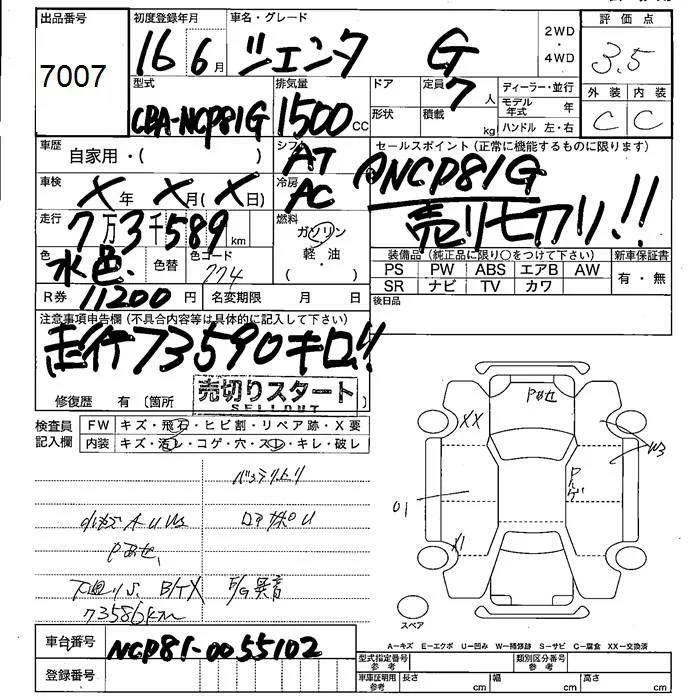 出品番号
初度登録年月
車名・グレード
2WD
4WD
評価点
7007
16年6月
シエンタ G
3.5
外装 内装
C C
型式
CBA-NCP81G
排気量
1500CC
ドア
形状
定員
7人
積載
kg
ディーラー・並行
モデル年式 年
ハンドル 左・右
車歴
自家用・( )
シフト
AT
セールスポイント(正常に機能するものに限ります)
NCP81G
売り切り!!
車検
X年 X月(X日)
冷房
AC
走行
7万3千589km
燃料
ガソリン
軽・油
・( )
色
水色
色替
色コード
774
装備品(純正品に限り○をつけて下さい)
新車保証書
PS PW ABS エアB AW
SR ナビ TV カワ
有・無
R券 11200円
名変期限 月 日
後日品
注意事項申告欄(不具合内容等は具体的に記入して下さい)
走行73590キロ!!
売切りスタート
SELLOUT
修復歴 有(箇所 )
検査員記入欄
FW キズ・飛石・ヒビ割・リペア跡・X要
内装 キズ・汚レ・コゲ・穴・スレ・キレ・破レ
バッテリ上り
小キズ A.U.W有
P あせ
下廻りS. B/T X
E/G異音
73586km
P あせ
XX
W3
01
X1
スペア
A−キズ E−エクボ U−凹み W−補修跡 S−サビ C−腐食 XX−交換済
車台番号
NCP81-0055102
登録番号
型式指定番号 参考
類別区分番号 参考
車庫証明用 参考
長さ cm
幅 cm
高さ cm